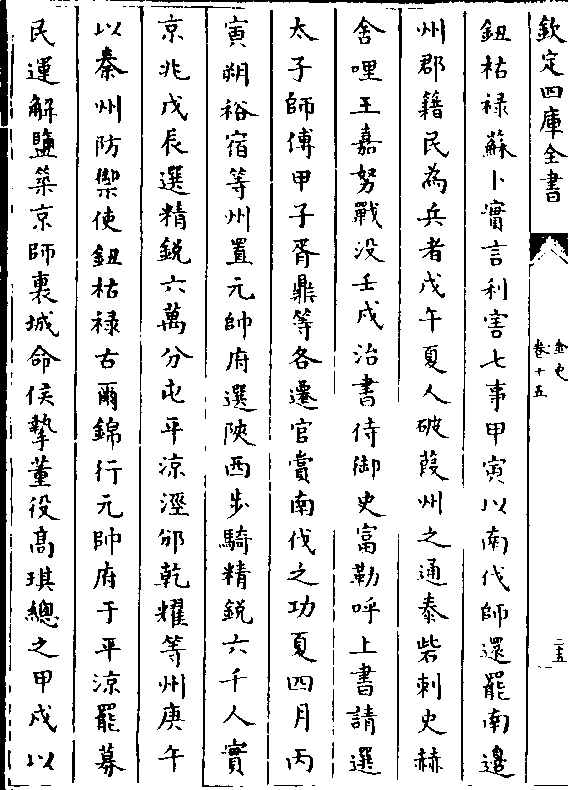 欽定四庫全書
金史
卷十五
二五
鈕祜祿蘇卜實言利害七事甲寅以南伐師還罷南邊
州郡籍民為兵者戊午夏人破葭州之通泰砦刺史赫
舍哩王嘉努戰没壬戌治書侍御史富勒呼上書請選
太子師傅甲子胥鼎等各遷官賞南伐之功夏四月丙
寅朔裕宿等州置元帥府選陜西步騎精銳六千人實
京兆戊辰選精銳六萬分屯平涼涇邠乾耀等州庚午
以秦州防禦使鈕祜祿古爾錦行元帥府于平涼罷募
民運解鹽築京師裏城命侯摯董役髙琪總之甲戌以